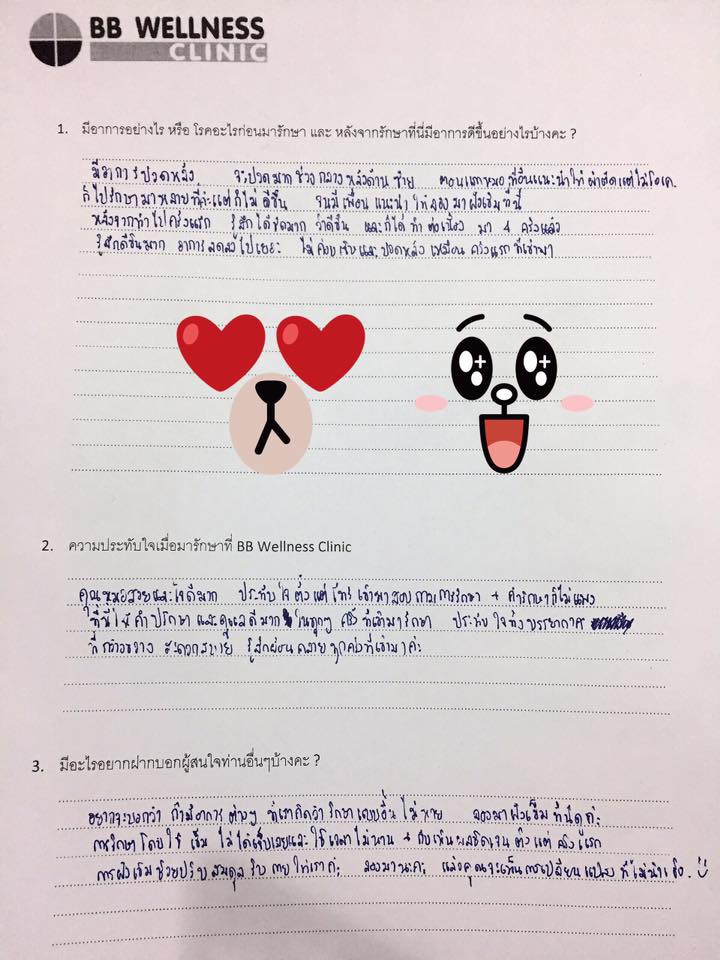 BB WELLNESS
CLINIC
1. มีอาการอย่างไร หรือ โรคอะไรก่อนมารักษา และ หลังจากรักษาที่นี่มีอาการดีขึ้นอย่างไรบ้างคะ ?
มีอาการปวดหลัง จะปวดมากช่วงกลางหลังด้านซ้าย ตอนแรกหมอที่อื่นแนะนำให้ผ่าตัดแต่ไม่โอเค
ก็ไปรักษามาหลายที่ค่ะแต่ก็ไม่ดีขึ้น จนมีเพื่อนแนะนำให้ลองมาฝังเข็มที่นี่
หลังจากทำไปครั้งแรก รู้สึกได้ชัดมากว่าดีขึ้น และก็ได้ทำต่อเนื่องมา 4 ครั้งแล้ว
รู้สึกดีขึ้นมาก อาการลดลงไปเยอะ ไม่ค่อยเจ็บและปวดหลังเหมือนครั้งแรกที่เข้ามา
2. ความประทับใจเมื่อมารักษาที่ BB Wellness Clinic
คุณหมอสวยและใจดีมาก ประทับใจตั้งแต่โทรเข้ามาสอบถามการรักษา + ค่ารักษาก็ไม่แพง
ที่นี่ให้คำปรึกษาและดูแลดีมากในทุกๆ ครั้งที่เข้ามารักษา ประทับใจทั้งบรรยากาศ
ที่กว้างขวาง สะดวกสบาย รู้สึกผ่อนคลายทุกครั้งที่เข้ามาค่ะ
3. มีอะไรอยากฝากบอกผู้สนใจท่านอื่นๆบ้างคะ ?
อยากจะบอกว่า ถ้ามีอาการต่างๆ ที่เราคิดว่ารักษาแบบอื่นไม่หาย ลองมาฝังเข็มที่นี่ดูค่ะ
การรักษาโดยใช้เข็ม ไม่ได้เจ็บเลยและใช้เวลาไม่นาน + กับเห็นผลชัดเจนตั้งแต่ครั้งแรก
การฝังเข็มช่วยปรับสมดุลร่างกายให้เราค่ะ ลองมานะคะ แล้วคุณจะเห็นการเปลี่ยนแปลงที่ไม่น่าเชื่อ